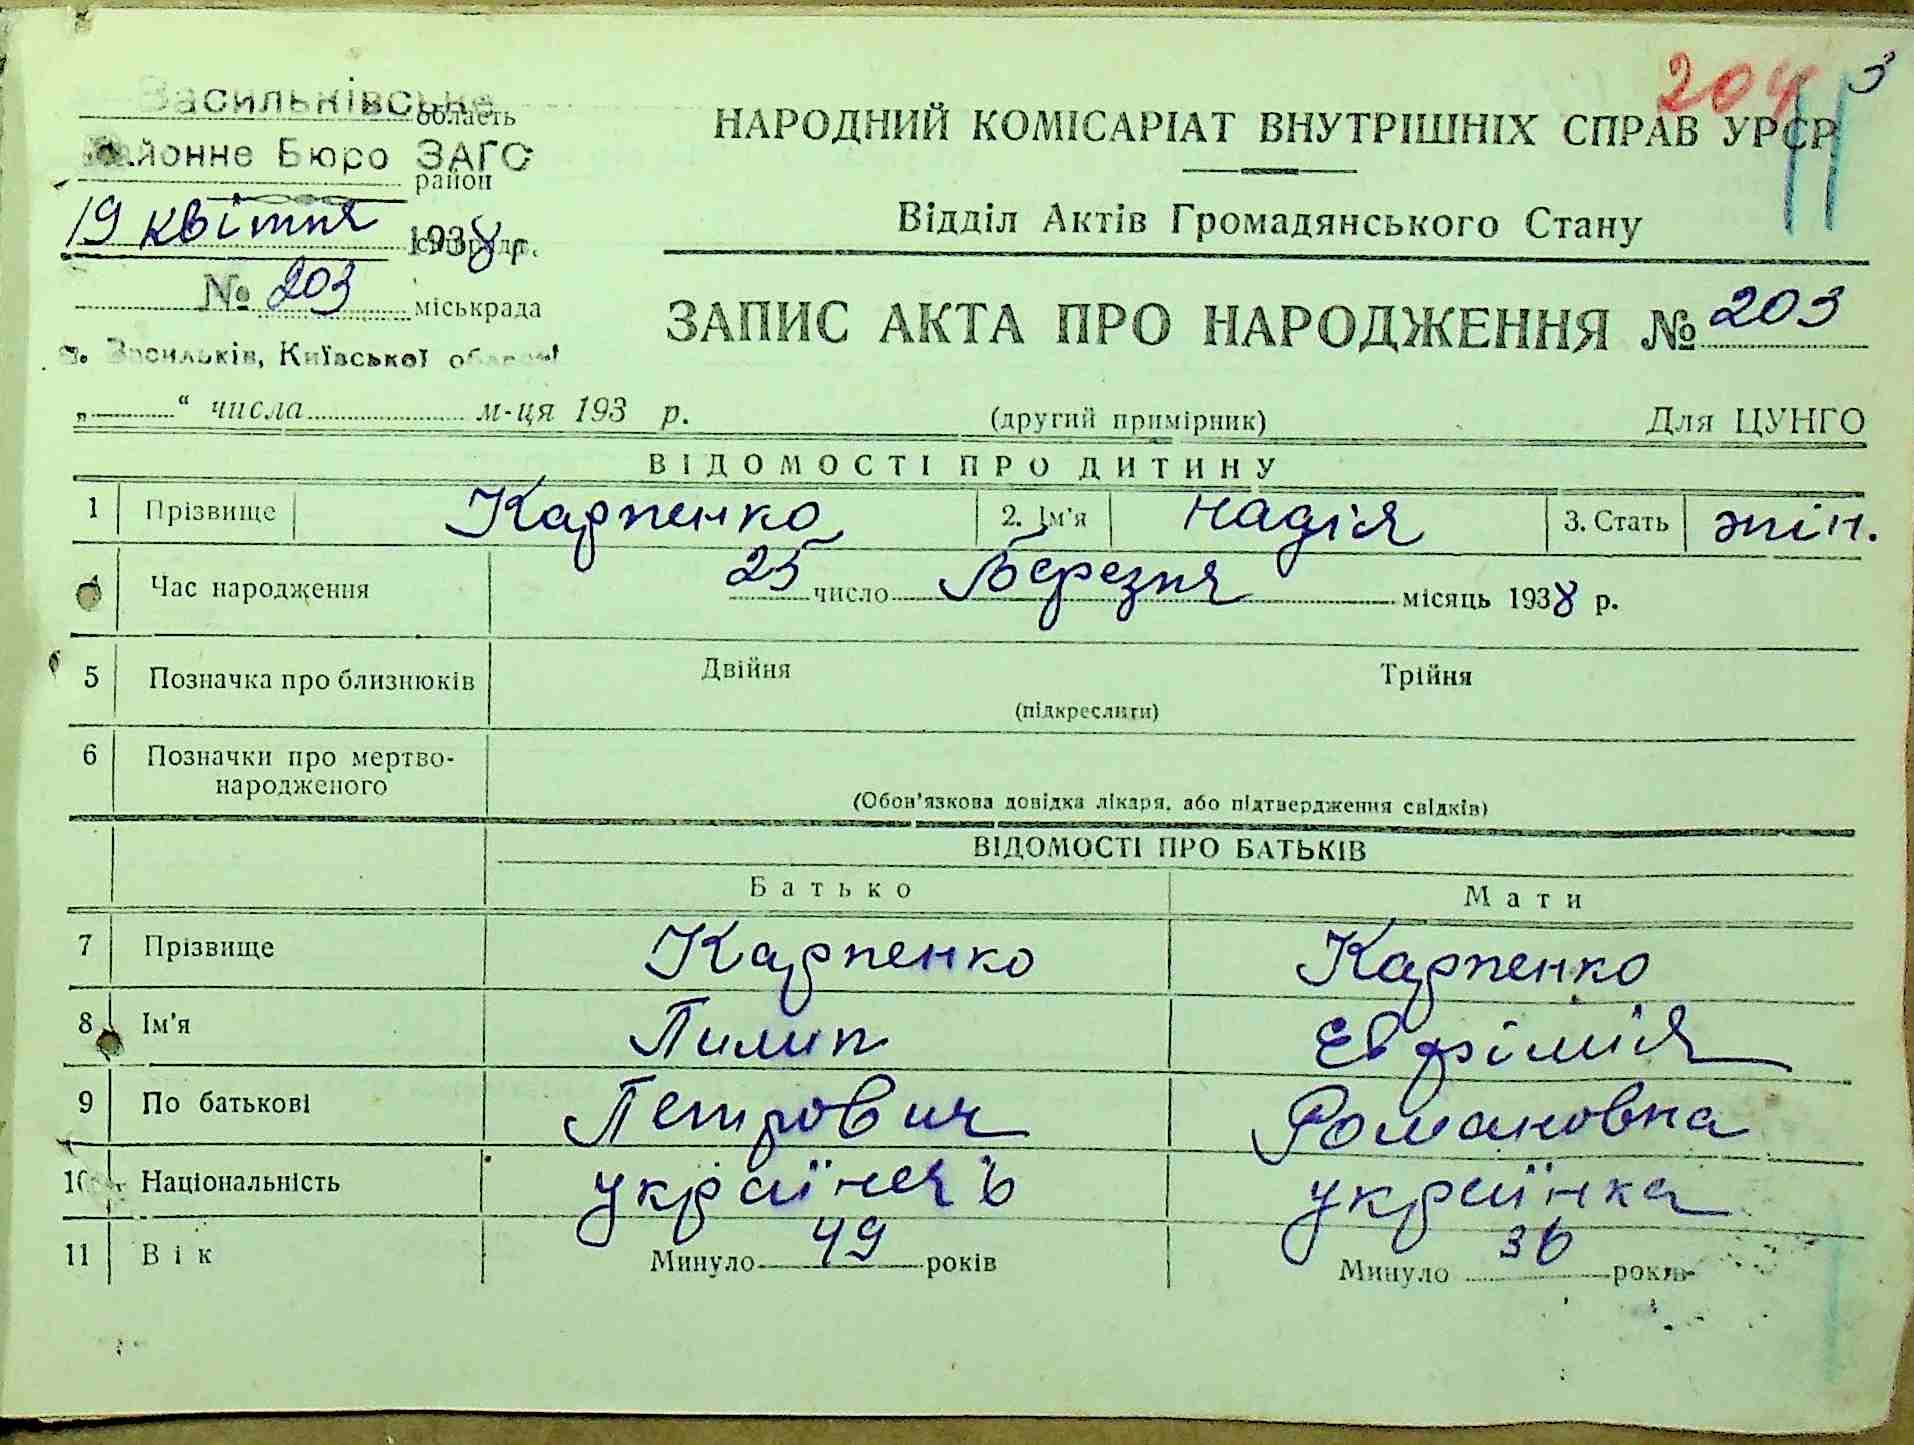 Васильківське
область
Районне Бюро ЗАГС
район
19 квітня 1938 р.
№ 203
міськрада
м. Васильків, Київської області
„ “ числа м-ця 193 р.
204 3
НАРОДНИЙ КОМІСАРІАТ ВНУТРІШНІХ СПРАВ УРСР
Відділ Актів Громадянського Стану
ЗАПИС АКТА ПРО НАРОДЖЕННЯ № 203
(другий примірник) Для ЦУНГО
ВІДОМОСТІ ПРО ДИТИНУ
1 Прізвище Карпенко 2. Ім'я Надія 3. Стать жін.
4 Час народження 25 число Березня місяць 1938 р.
5 Позначка про близнюків Двійня Трійня
(підкреслити)
6 Позначки про мертво-
народженого
(Обов'язкова довідка лікаря, або підтвердження свідків)
ВІДОМОСТІ ПРО БАТЬКІВ
Батько Мати
7 Прізвище Карпенко Карпенко
8 Ім'я Пилип Евфімія
9 По батькові Петрович Романовна
10 Національність українець українка
11 Вік Минуло 49 років Минуло 36 років